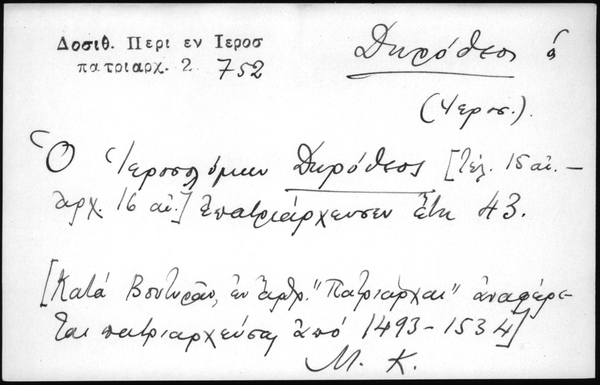 Δοσιθ. Περι εν Ιεροσ
πατριαρχ. 2. 752
Δωρόθεος ὁ
(Ἱεροσ.).
Ὁ Ἱεροσολύμων Δωρόθεος [Τέλ. 15 αἰ. –
ἀρχ. 16 αἰ.] ἐπατριάρχευσεν ἔτη 43.
[Κατά Βουτυρᾶν, ἐν ἄρθρ. "Πατριάρχαι" ἀναφέρε-
ται πατριαρχεύσας ἀπό 1493-1534]
Μ. Κ.